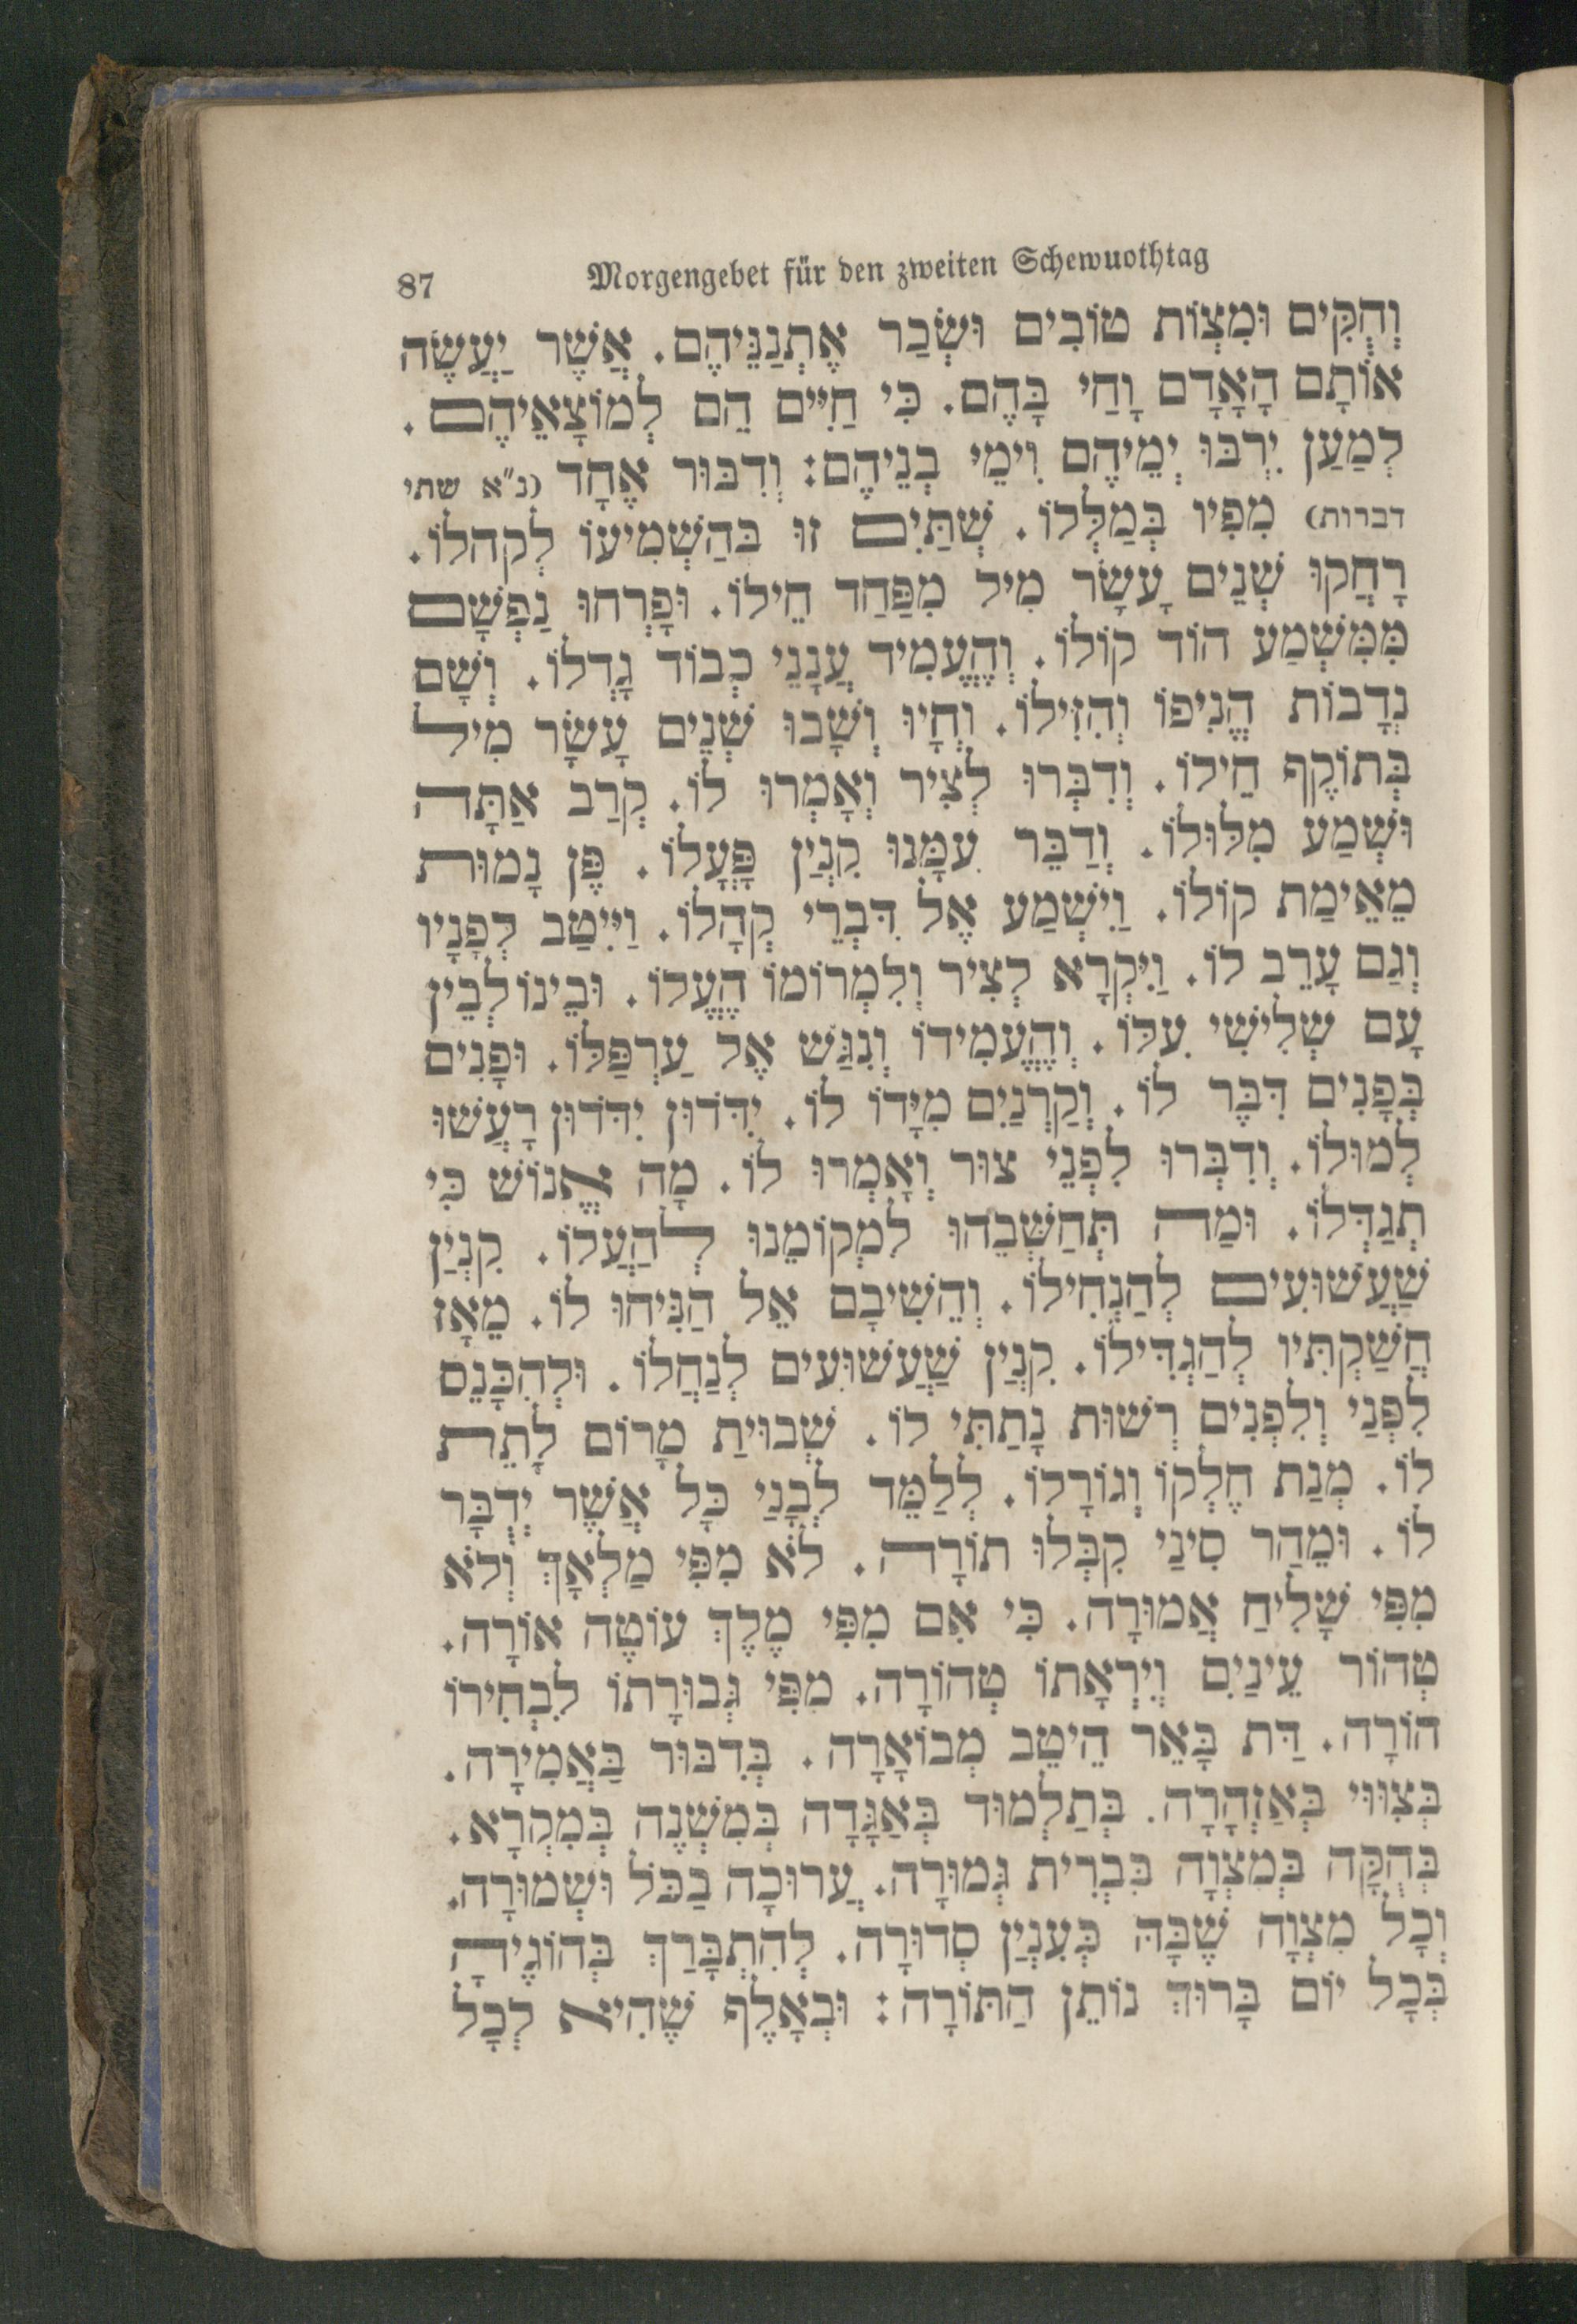 87 Morgengebet für den zweiten Schewuothtag
וְחֻקִּים וּמִצְוֹת טוֹבִים וּשְׂכַר אֶתְנַנֵּיהֶם. אֲשֶׁר יַעֲשֶׂה
אוֹתָם הָאָדָם וָחַי בָּהֶם. כִּי חַיִּים הֵם לְמוֹצָאֵיהֶם.
לְמַעַן יִרְבּוּ יְמֵיהֶם וִימֵי בְנֵיהֶם: וְדִבּוּר אֶחָד (נ״א שתי
דברות) מִפִּיו בְּמַלְּלוֹ. שְׁתַּיִם זוּ בּהַשְׁמִיעוֹ לִקְהלוֹ.
רָחֲקוּ שְׁנֵים עָשָׂר מִיל מִפַּחַד חֵילוֹ. וּפָרְחוּ נַפְשָׁם
מִמִּשְׁמַע הוֹד קוֹלוֹ. וְהֶעֱמִיד עֲנָנֵי כְבוֹד גָּדְלוֹ. וְשָׁם
נְדָבוֹת הֱנִיפוֹ וְהִזִּילוֹ. וְחָיוּ וְשָׁבוּ שְׁנֵים עָשָׂר מִיל
בְּתוֹקֶף חֵילוֹ. וְדִבְּרוּ לְצִיר וְאָמְרוּ לוֹ. קְרַב אַתָּה
וּשְׁמַע מִלּוּלוֹ. וְדַבֵּר עִמָּנוּ קִנְיַן פָּעֳלוֹ. פֶּן נָמוּת
מֵאֵימַת קוֹלוֹ. וַיִּשְׁמַע אֶל דִּבְרֵי קְהָלוֹ. וַיִּיטַב לְפָנָיו
וְגַם עָרֵב לוֹ. וַיִּקְרָא לְצִיר וְלִמְרוֹמוֹ הֶעֱלוֹ. וּבֵינוֹ לְבֵין
עָם שְׁלִישִׁי עִלּוֹ. וְהֶעֱמִידוֹ וְנִגַּשׁ אֶל עַרְפַּלּוֹ. וּפָנִים
בְּפָנִים דִּבֶּר לוֹ. וְקַרְנַיִם מִיָּדוֹ לוֹ. יִדֹּדוּן יִדֹּדוּן רָעֲשׁוּ
לְמוּלוֹ. וְדִבְּרוּ לִפְנֵי צוּר וְאָמְרוּ לוֹ. מָה אֱנוֹשׁ כִּי
תְגַדְּלוֹ. וּמַה תְּחַשְּׁבֵהוּ לִמְקוֹמֵנוּ לְהַעֲלוֹ. קִנְיַן
שַׁעֲשׁוּעִים לְהַנְחִילוֹ. וְהֵשִׁיבָם אֵל הַנִּיחוּ לוֹ. מֵאָז
חֲשַׁקְתִּיו לְהַגְדִּילוֹ. קִנְיַן שַׁעֲשׁוּעִים לְנַחֲלוֹ. וּלְהִכָּנֵס
לִפְנַי וְלִפְנִים רְשׁוּת נָתַתִּי לוֹ. שְׁבוּיַת מָרוֹם לָתֵת
לוֹ. מְנַת חֶלְקוֹ וְגוֹרָלוֹ. לְלַמֵּד לְבָנַי כָּל אֲשֶׁר יְדֻבָּר
לוֹ. וּמֵהַר סִינַי קִבְּלוּ תוֹרָה. לֹא מִפִּי מַלְאָךְ וְלֹא
מִפִּי שָׁלִיחַ אֲמוּרָה. כִּי אִם מִפִּי מֶלֶךְ עוֹטֶה אוֹרָה.
טְהוֹר עֵינַיִם וְיִרְאָתוֹ טְהוֹרָה. מִפִּי גְּבוּרָתוֹ לִבְחִירוֹ
הוֹרָה. דַּת בָּאֵר הֵיטֵב מְבוֹאָרָה. בְּדִבּוּר בַּאֲמִירָה.
בְּצִוּוּי בְּאַזְהָרָה. בְּתַלְמוּד בְּאַגָּדָה בְּמִשְׁנָה בְּמִקְרָא.
בְּחֻקָּה בְּמִצְוָה בִּבְרִית גְּמוּרָה. עֲרוּכָה בַכֹּל וּשְׁמוּרָה.
וְכָל מִצְוָה שֶׁבָּהּ כְּעִנְיַן סְדוּרָה. לְהִתְבָּרַךְ בְּהוֹגֶיהָ
בְּכָל יוֹם בָּרוּךְ נוֹתֵן הַתּוֹרָה: וּבְאָלֶף שֶׁהִיא לְכָל